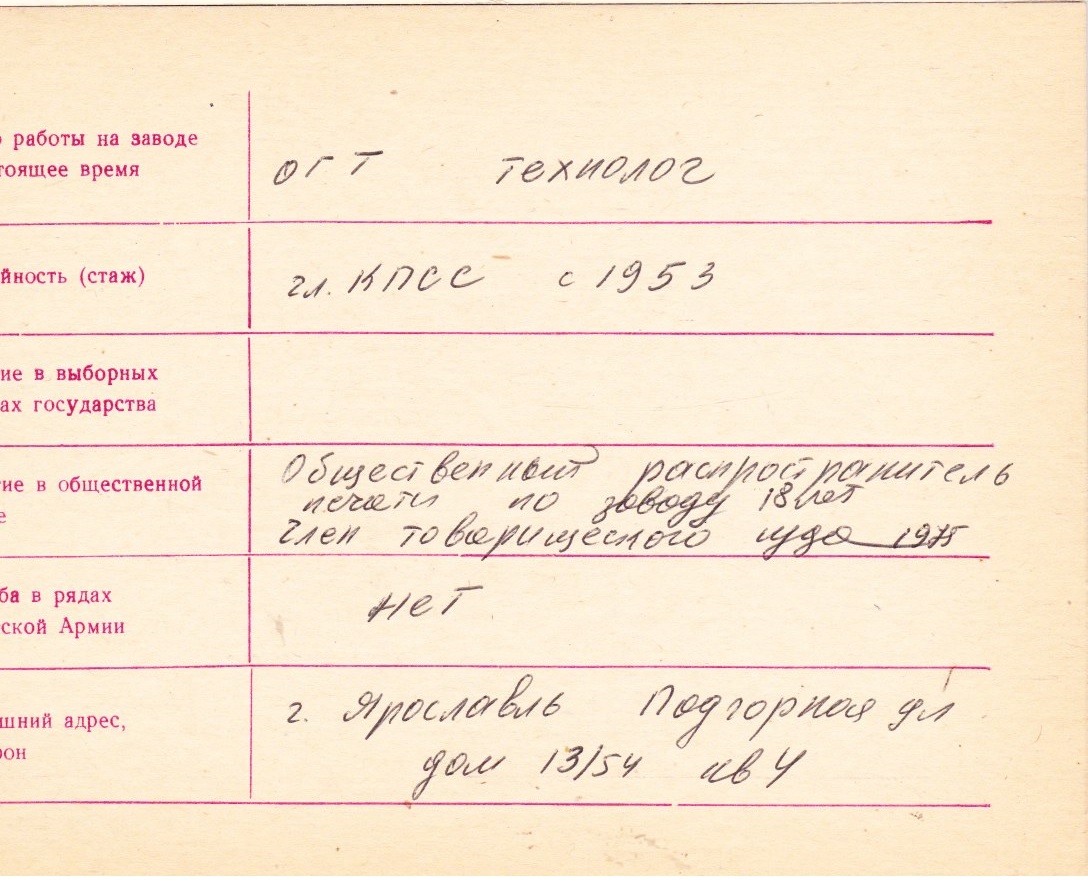 о работы на заводе
тоящее время
ОГТ технолог
йность (стаж)
чл. КПСС с 1953
ие в выборных
ах государства
тие в общественной
е
Общественный распространитель
печати по заводу 18 лет
Член товарищеского суда 1975
ба в рядах
ской Армии
нет
шний адрес,
фон
г. Ярославль Подгорная ул
дом 13/54 кв 4